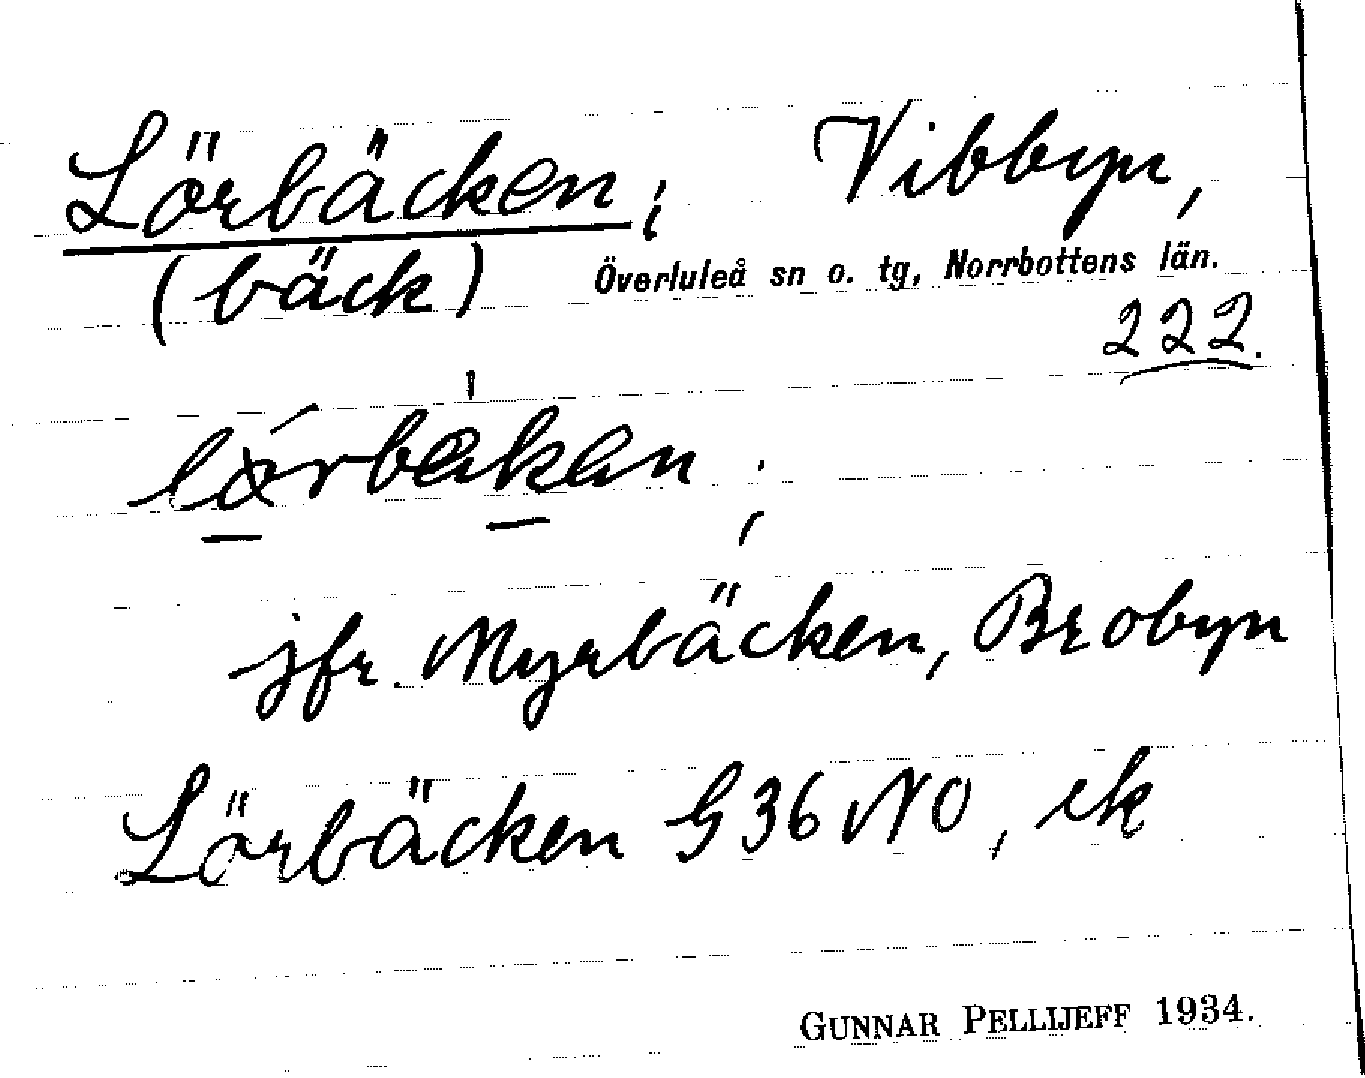 Lörbäcken; Vibbyn,
(bäck) Överluleå sn o. tg, Norrbottens län.
222.
jfr. Myrbäcken, Brobyn
Lörbäcken G 36 NO, ek
GUNNAR PELLIJEFF 1934.